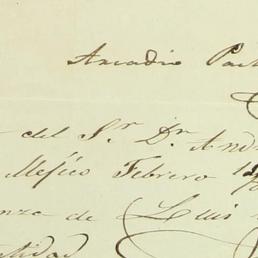 Arcadio Pach
del Sr. Dn. And
Mejico Febrero 1
nza de Luis
tidad